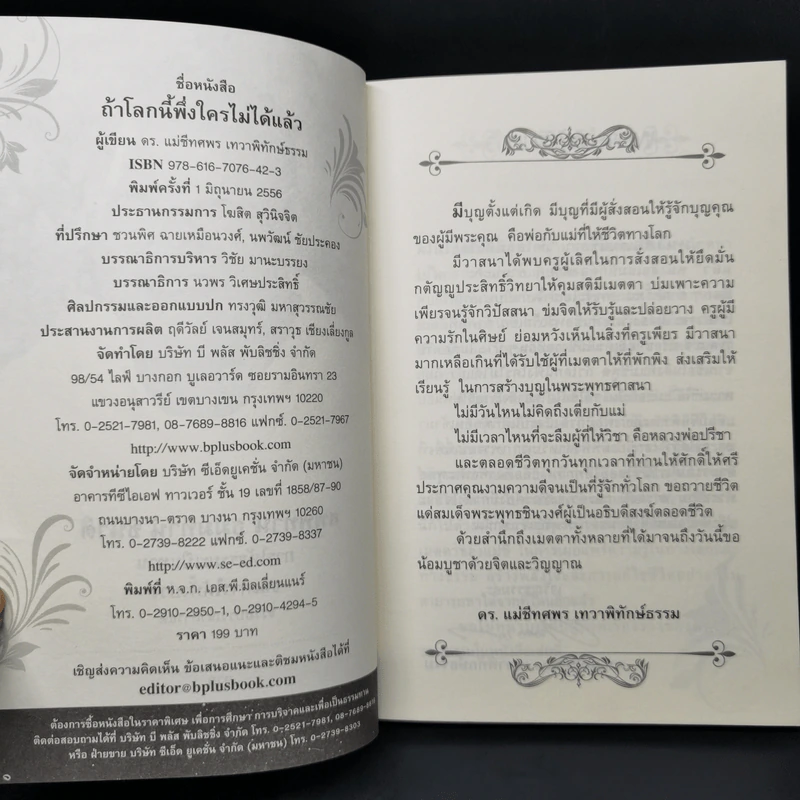 ชื่อหนังสือ
ถ้าโลกนี้พึ่งใครไม่ได้แล้ว
ผู้เขียน ดร. แม่ชีทศพร เทวาพิทักษ์ธรรม
ISBN 978-616-7076-42-3
พิมพ์ครั้งที่ 1 มิถุนายน 2556
ประธานกรรมการ โฆสิต สุวินิจจิต
ที่ปรึกษา ชวนพิศ ฉายเหมือนวงศ์, นพวัฒน์ ชัยประคอง
บรรณาธิการบริหาร วิชัย มานะบรรยง
บรรณาธิการ นวพร วิเศษประสิทธิ์
ศิลปกรรมและออกแบบปก ทรงวุฒิ มหาสุวรรณชัย
ประสานงานการผลิต ฤดีวัลย์ เจนสมุทร์, สราวุธ เชียงเลี่ยงกูล
จัดทำโดย บริษัท บี พลัส พับลิชชิ่ง จำกัด
98/54 ไลฟ์ บางกอก บูเลอวาร์ด ซอยรามอินทรา 23
แขวงอนุสาวรีย์ เขตบางเขน กรุงเทพฯ 10220
โทร. 0-2521-7981, 08-7689-8816 แฟกซ์. 0-2521-7967
http://www.bplusbook.com
จัดจำหน่ายโดย บริษัท ซีเอ็ดยูเคชั่น จำกัด (มหาชน)
อาคารทีซีไอเอฟ ทาวเวอร์ ชั้น 19 เลขที่ 1858/87-90
ถนนบางนา-ตราด บางนา กรุงเทพฯ 10260
โทร. 0-2739-8222 แฟกซ์. 0-2739-8337
http://www.se-ed.com
พิมพ์ที่ ห.จ.ก. เอส.พี.มิลเลี่ยนแนร์
โทร. 0-2910-2950-1, 0-2910-4294-5
ราคา 199 บาท
เชิญส่งความคิดเห็น ข้อเสนอแนะและติชมหนังสือได้ที่
editor@bplusbook.com
ต้องการซื้อหนังสือในราคาพิเศษ เพื่อการศึกษา การบริจาคและเพื่อเป็นธรรมทาน
ติดต่อสอบถามได้ที่ บริษัท บี พลัส พับลิชชิ่ง จำกัด โทร. 0-2521-7981, 08-7689-8816
หรือ ฝ่ายขาย บริษัท ซีเอ็ด ยูเคชั่น จำกัด (มหาชน) โทร. 0-2739-8303
มีบุญตั้งแต่เกิด มีบุญที่มีผู้สั่งสอนให้รู้จักบุญคุณ
ของผู้มีพระคุณ คือพ่อกับแม่ที่ให้ชีวิตทางโลก
มีวาสนาได้พบครูผู้เลิศในการสั่งสอนให้ยึดมั่น
กตัญญูประสิทธิ์วิทยาให้คุมสติมีเมตตา บ่มเพาะความ
เพียรจนรู้จักวิปัสสนา ข่มจิตให้รับรู้และปล่อยวาง ครูผู้มี
ความรักในศิษย์ ย่อมหวังเห็นในสิ่งที่ครูเพียร มีวาสนา
มากเหลือเกินที่ได้รับใช้ผู้ที่เมตตาให้ที่พักพิง ส่งเสริมให้
เรียนรู้ ในการสร้างบุญในพระพุทธศาสนา
ไม่มีวันไหนไม่คิดถึงเตี่ยกับแม่
ไม่มีเวลาไหนที่จะลืมผู้ที่ให้วิชา คือหลวงพ่อปรีชา
และตลอดชีวิตทุกวันทุกเวลาที่ท่านให้ศักดิ์ให้ศรี
ประกาศคุณงามความดีจนเป็นที่รู้จักทั่วโลก ขอถวายชีวิต
แด่สมเด็จพระพุทธชินวงศ์ผู้เป็นอธิบดีสงฆ์ตลอดชีวิต
ด้วยสำนึกถึงเมตตาทั้งหลายที่ได้มาจนถึงวันนี้ขอ
น้อมบูชาด้วยจิตและวิญญาณ
ดร. แม่ชีทศพร เทวาพิทักษ์ธรรม